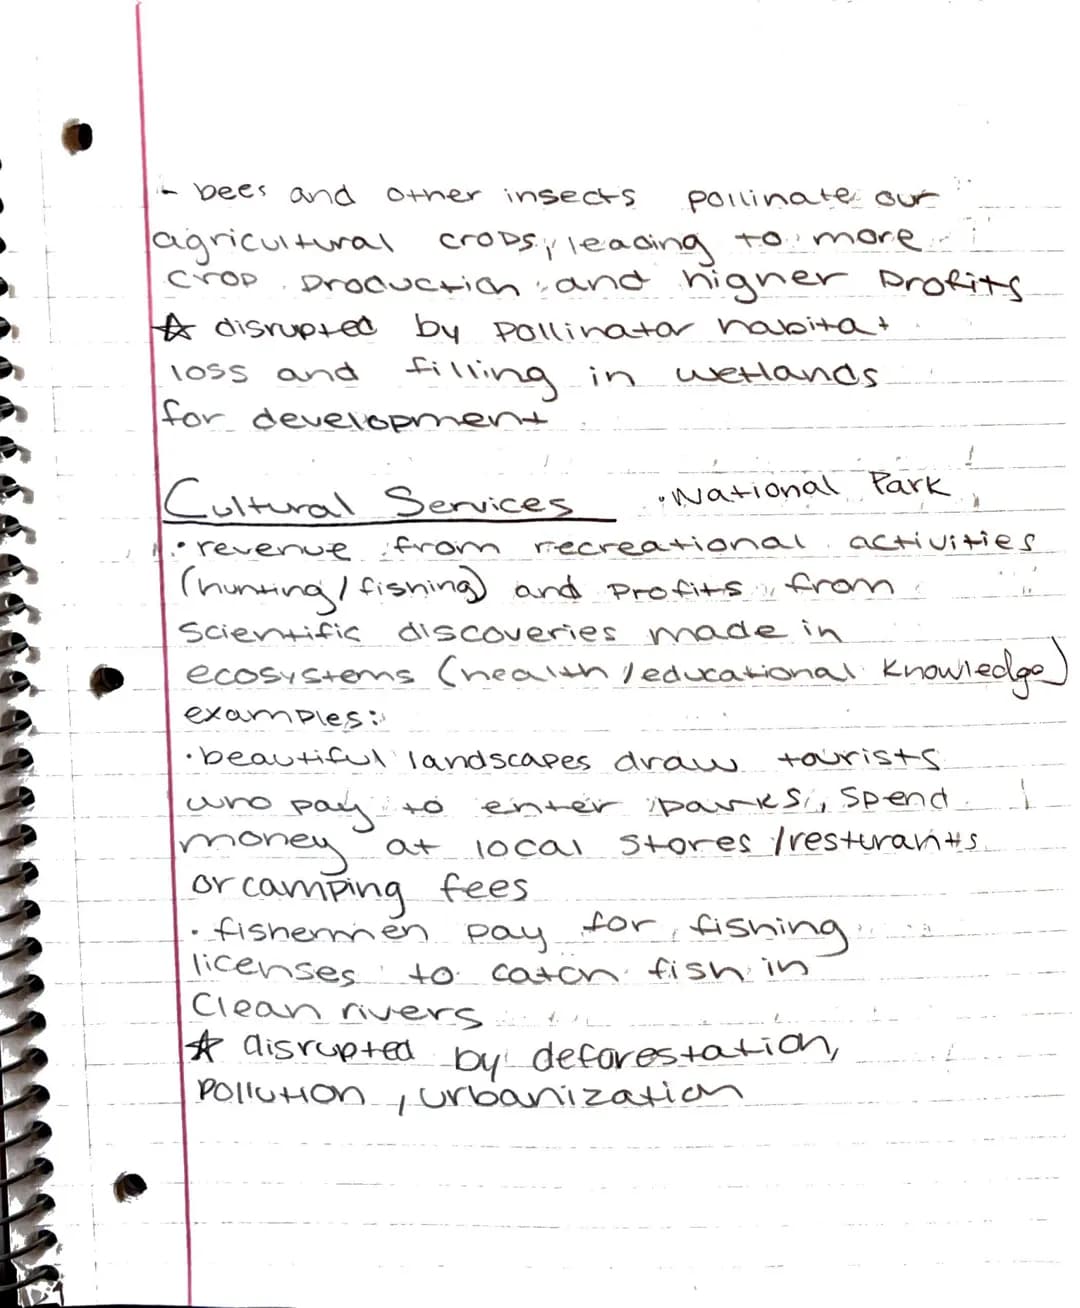 - bees and other insects pollinate our
agricultural crops, leading to more
crop production and higher profits
☆ disrupted by pollinator habitat
loss and filling in wetlands
for development
Cultural Services · National Park
· revenue from recreational activities
(hunting / fishing) and profits from
scientific discoveries made in
ecosystems (health / educational knowledge)
examples:
· beautiful landscapes draw tourists
who pay to enter parks, spend
money at local stores / resturants
or camping fees
· fishermen pay for fishing
licenses to catch fish in
Clean rivers
☆ disrupted by deforestation,
pollution, urbanization